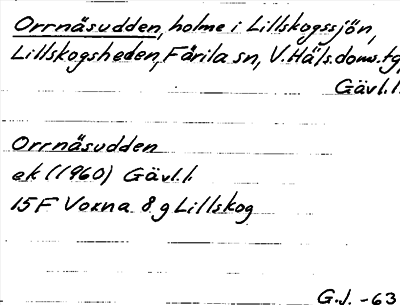 Orrnäsudden, holme i Lillskogssjön,
Lillskogsheden, Färila sn, V. Häls. doms. tg,
Gävl. l.
Orrnäsudden
ek (1960) Gävl. l.
15F Voxna 8 g Lillskog
G.J. -63